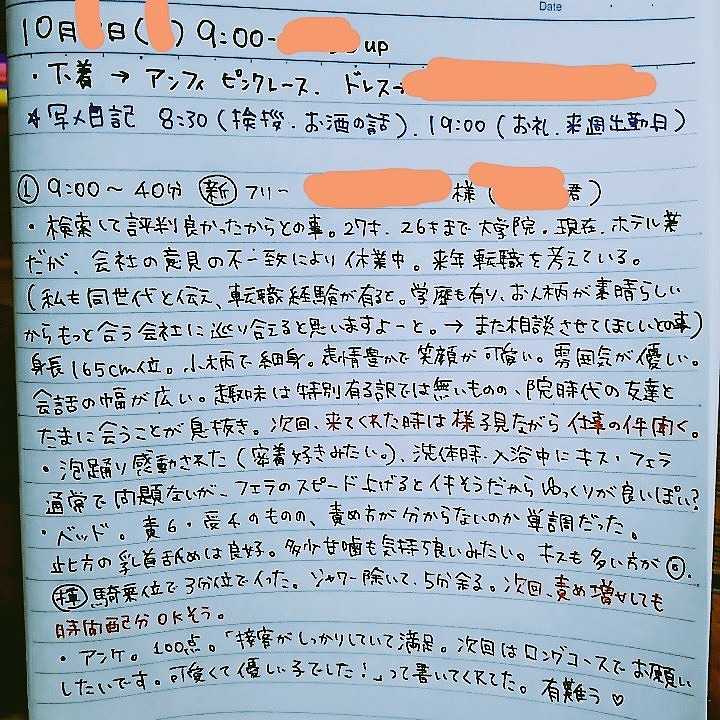 Date
10月 日( ) 9:00- up
・下着 → アンフィ ピンクレース. ドレス→
☆写メ日記 8:30 (挨拶.お酒の話). 19:00 (お礼.来週出勤日)
① 9:00～40分 新 フリー 様 ( 君)
・検索して評判良かったからとの事。27才. 26才まで大学院. 現在、ホテル業
だが、会社の意見の不一致により休業中。来年転職を考えている。
(私も同世代と伝え、転職経験が有ると。学歴も有り、お人柄が素晴らしい
からもっと合う会社に巡り合えると思いますよーと。→ また相談させてほしいとの事)
身長165cm位。小柄で細身。表情豊かで笑顔が可愛い。雰囲気が優しい。
会話の幅が広い。趣味は特別有る訳では無いものの、院時代の友達と
たまに会うことが息抜き。次回、来てくれた時は様子見ながら仕事の件聞く。
・泡踊り感動された(密着好きみたい。)、洗体時・入浴中にキス・フェラ
通常で問題ないが、フェラのスピード上げるとイキそうだからゆっくりが良いぽい?
・ベッド。責6・受4のものの、責め方が分からないのか単調だった。
此方の乳首舐めは良好。多少甘噛も気持ち良いみたい。キスも多い方が
騎乗位で3分位でイった。シャワー除いて、5分余る。次回、責め増やしても
時間配分OKそう。
・アンケ。100点。「接客がしっかりしていて満足。次回はロングコースでお願い
したいです。可愛くて優しい子でした!」って書いてくれてた。有難う♡